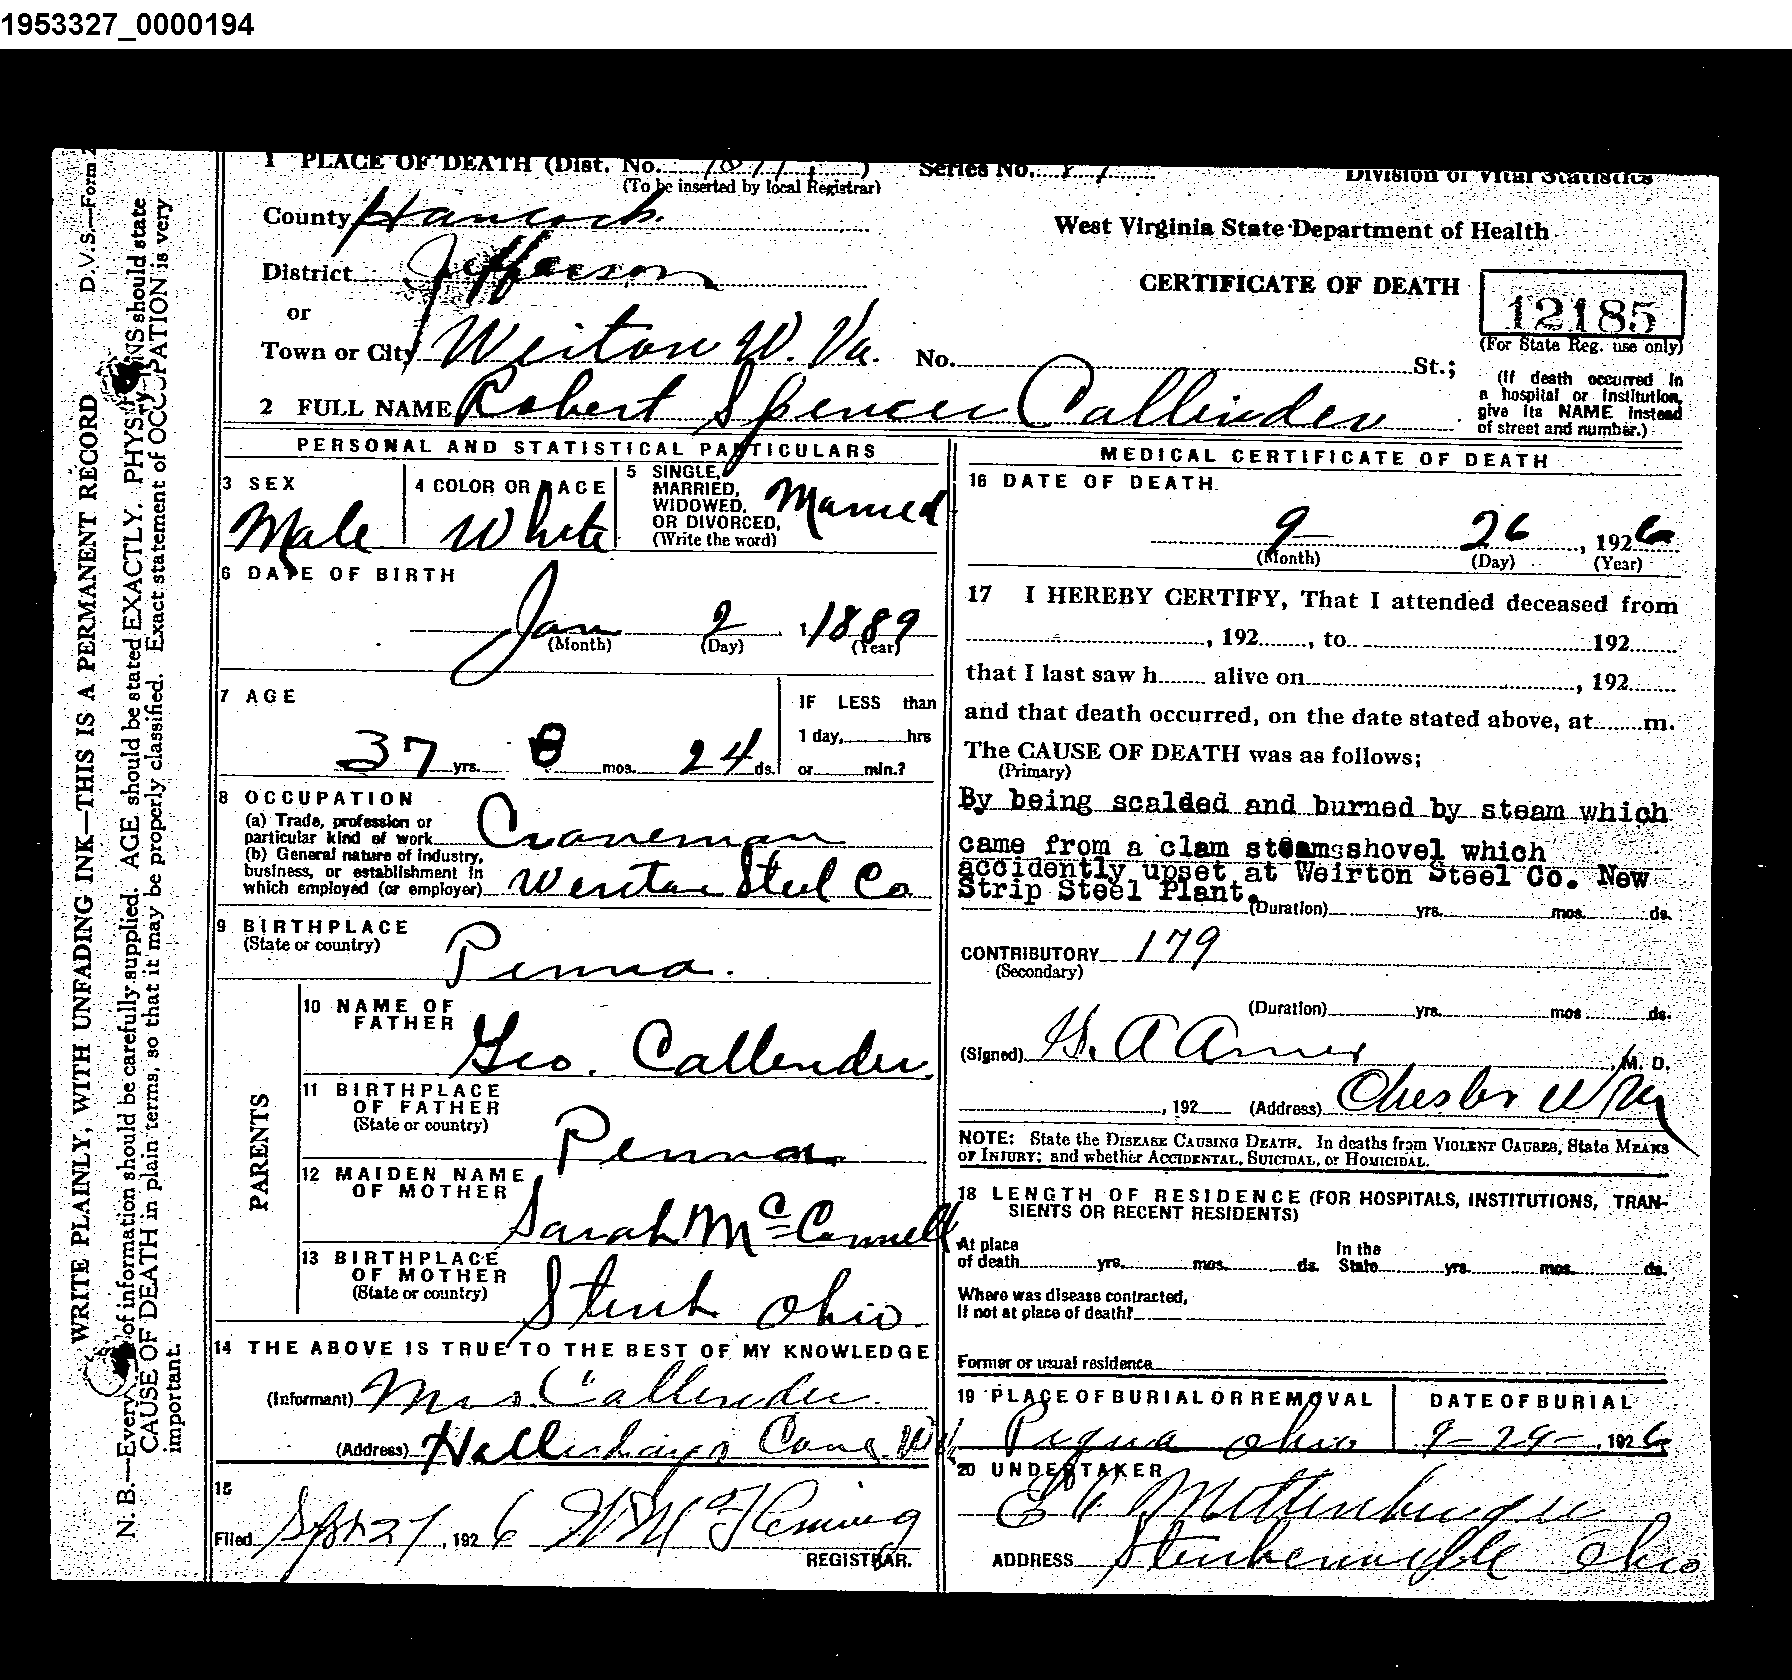 1953327_0000194
1 PLACE OF DEATH (Dist. No. ) Series No. Division of Vital Statistics
(To be inserted by local Registrar)
County Hancock
West Virginia State Department of Health
District Jefferson
CERTIFICATE OF DEATH
12185
(For State Reg. use only)
or
Town or City Weirton W. Va. No. St.;
(If death occurred in
a hospital or institution,
give its NAME instead
of street and number.)
2 FULL NAME Robert Spencer Callender
PERSONAL AND STATISTICAL PARTICULARS
3 SEX
Male
4 COLOR OR RACE
White
5 SINGLE,
MARRIED,
WIDOWED,
OR DIVORCED,
(Write the word)
Married
6 DATE OF BIRTH
Jan 2 , 1889
(Month) (Day) (Year)
7 AGE
37 yrs. 8 mos. 24 ds.
IF LESS than
1 day, hrs
or min.?
8 OCCUPATION
(a) Trade, profession or
particular kind of work Craneman
(b) General nature of industry,
business, or establishment in
which employed (or employer) Weirton Steel Co
9 BIRTHPLACE
(State or country)
Penna.
PARENTS
10 NAME OF
FATHER
Geo. Callender
11 BIRTHPLACE
OF FATHER
(State or country)
Penna
12 MAIDEN NAME
OF MOTHER
Sarah McConnell
13 BIRTHPLACE
OF MOTHER
(State or country)
Steub Ohio
14 THE ABOVE IS TRUE TO THE BEST OF MY KNOWLEDGE
(Informant) Mrs Callender
(Address) Hollidays Cove W
15
Filed Sept 27, 1926 McFleming
REGISTRAR.
MEDICAL CERTIFICATE OF DEATH
16 DATE OF DEATH
9 26 , 1926
(Month) (Day) (Year)
17 I HEREBY CERTIFY, That I attended deceased from
, 192 , to 192
that I last saw h alive on , 192
and that death occurred, on the date stated above, at m.
The CAUSE OF DEATH was as follows;
(Primary)
By being scalded and burned by steam which
came from a clam steamsshovel which
accidently upset at Weirton Steel Co. New
Strip Steel Plant.
(Duration) yrs. mos. ds.
CONTRIBUTORY 179
(Secondary)
(Duration) yrs. mos ds.
(Signed) M. D.
, 192 (Address) Chester W Va
NOTE: State the DISEASE CAUSING DEATH. In deaths from VIOLENT CAUSES, State MEANS
OF INJURY; and whether ACCIDENTAL, SUICIDAL, or HOMICIDAL.
18 LENGTH OF RESIDENCE (FOR HOSPITALS, INSTITUTIONS, TRAN-
SIENTS OR RECENT RESIDENTS)
At place
of death yrs. mos. ds.
In the
State yrs. mos. ds.
Where was disease contracted,
if not at place of death?
Former or usual residence
19 PLACE OF BURIAL OR REMOVAL
Piqua Ohio
DATE OF BURIAL
9-29-, 1926
20 UNDERTAKER
ADDRESS Steubenville Ohio
D.V.S.—Form 2
WRITE PLAINLY, WITH UNFADING INK—THIS IS A PERMANENT RECORD
N. B.—Every of information should be carefully supplied. AGE should be stated EXACTLY. PHYS NS should state
CAUSE OF DEATH in plain terms, so that it may be properly classified. Exact statement of OCCUPATION is very
important.